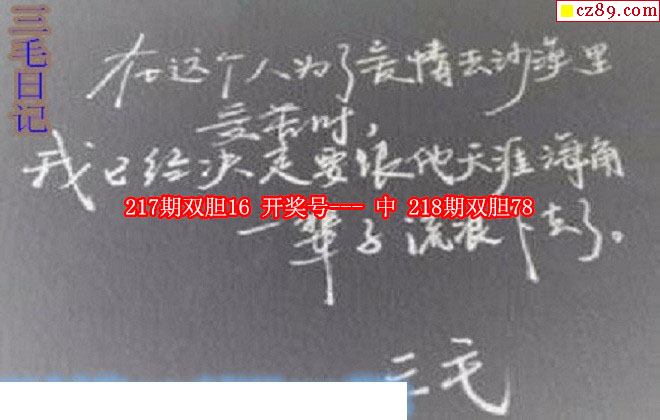 cz89.com
三毛日记
在这个人为了爱情去沙漠里
受苦时,
我已经决定要跟他天涯海角
217期双胆16 开奖号--- 中 218期双胆78
一辈子流浪下去了。
三毛